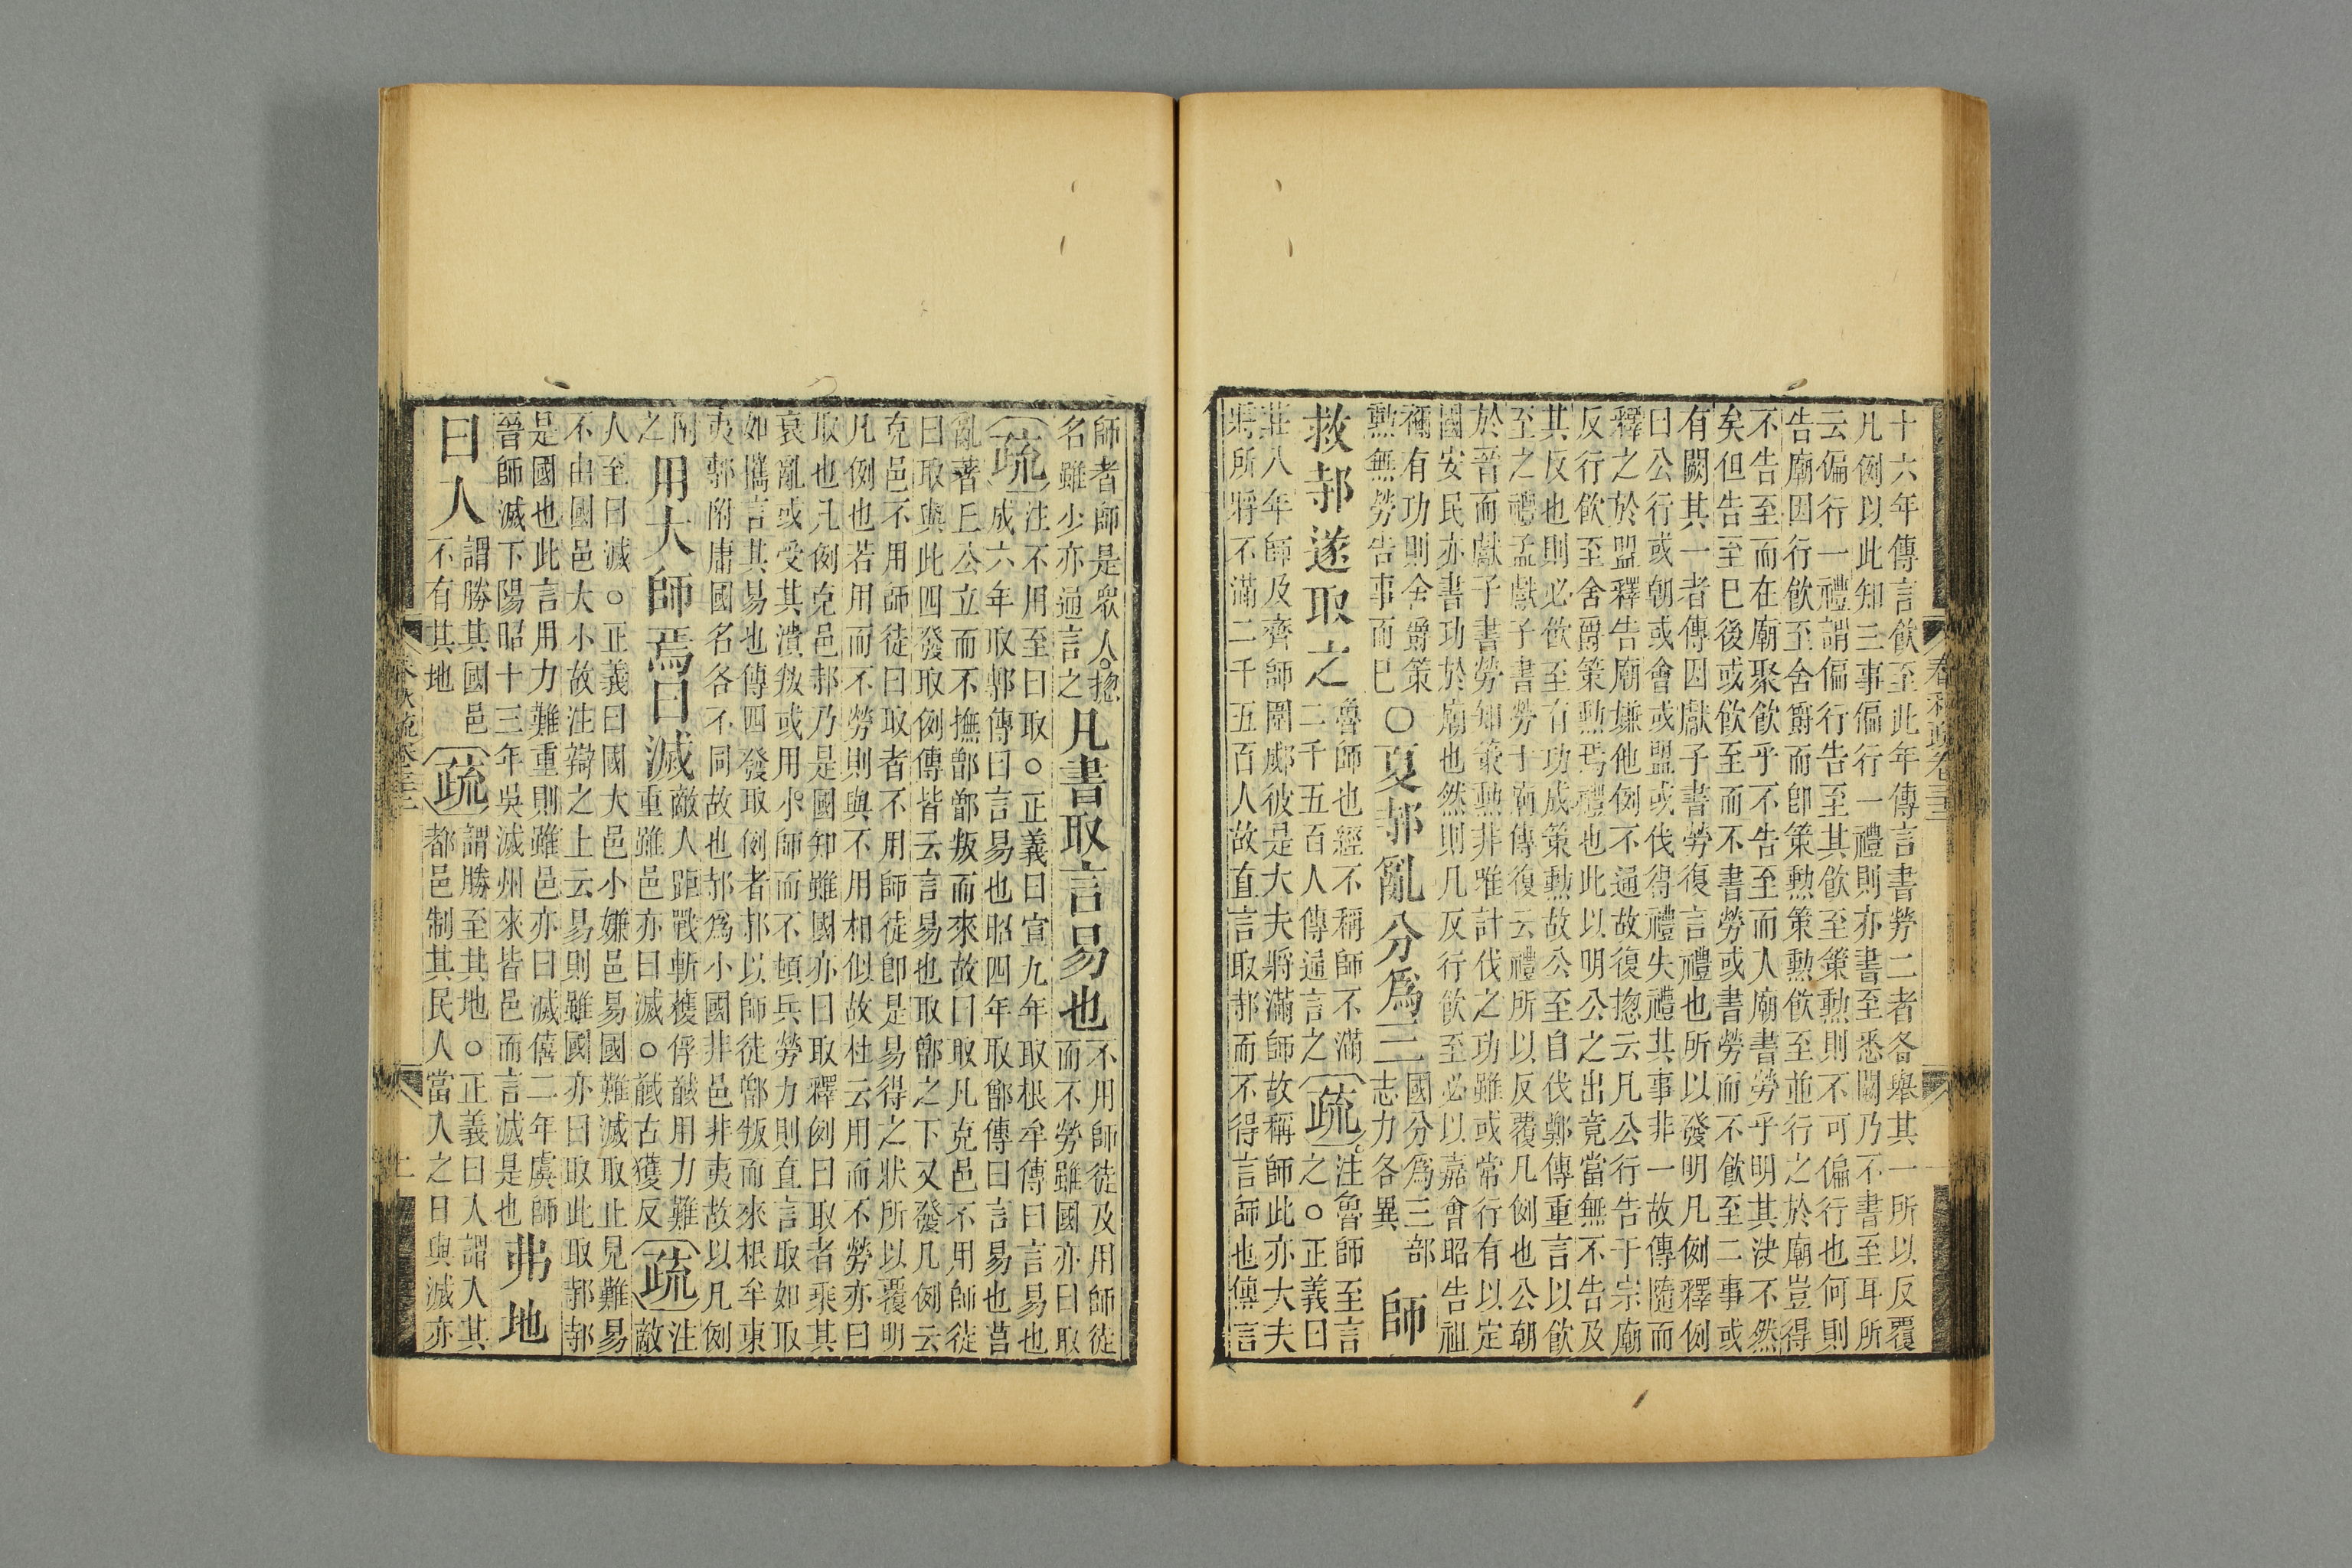 十六年傳言飲至此年傳言書勞二者各舉其一所以反覆
凡例以此知三事偏行一禮則亦書至悉闕乃不書至耳所
云偏行一禮謂偏行告至其飲至策勲則不可偏行也何則
告廟因行飲至舍爵而卽策勲策勲飲至並行之於廟豈得
不告至而在廟聚飲乎不告至而人廟書勞乎明其決不然
矣但告至巳後或飲至而不書勞或書勞而不飲至二事或
有闕其一者傳因獻子書勞復言禮也所以發明凡例釋例
曰公行或朝或會或盟或伐得禮失禮其事非一故傳隨而
釋之於盟釋告廟嫌他例不通故復揔云凡公行告于宗廟
反行飲至舍爵策勲焉禮也此以明公之出竟當無不告及
其反也則必飲至有功成策勲故公至自伐鄭傳重言以飲
至之禮孟獻子書勞于廟傳復云禮所以反覆凡例也公朝
於晉而獻子書勞知策勲非唯計伐之功雖或常行有以定
國安民亦書功於廟也然則凡反行飲至必以嘉會昭告祖
禰有功則舍爵策勲無勞告事而巳○夏邿亂分爲三國分爲三部志力各異師
救邿遂取之魯師也經不稱師不滿二千五百人傳通言之疏注魯師至言之○正義曰
莊八年師及齊師圍郕彼是大夫將滿師故稱師此亦大夫
將所將不滿二千五百人故直言取邿而不得言師也傳言
師者師是眾人揔名雖少亦通言之凡書取言易也不用師徒及用師徒而不勞雖國亦曰取
疏注不用至曰取○正義曰宣九年取根牟傳曰言易也
成六年取鄟傳曰言易也昭四年取鄫傳曰言易也莒
亂著丘公立而不撫鄫鄫叛而來故曰取凡克邑不用師徒
曰取與此四發取例傳皆云言易也取鄫之下又發凡例云
克邑不用師徒曰取者不用師徒卽是易得之狀所以覆明
凡例也若用而不勞則與不用相似故杜云用而不勞亦曰
取也凡例克邑邿乃是國知雖國亦曰取釋例曰取者乘其
衰亂或受其潰叛或用小師而不頓兵勞力則直言取如取
如攜言其易也傳四發取例者邿以師徒鄫叛而來根牟東
夷鄟附庸國名各不同故也邿爲小國非邑非夷故以凡例
附之用大師焉曰滅敵人距戰斬獲俘馘用力難重雖邑亦曰滅○馘古獲反疏注敵
人至曰滅○正義曰國大邑小嫌邑易國難滅取止見難易
不由國邑大小故注辯之上云易則雖國亦曰取此取邿邿
是國也此言用力難重則雖邑亦曰滅僖二年虞師
晉師滅下陽昭十三年吳滅州來皆邑而言滅是也弗地
曰入謂勝其國邑不有其地疏謂勝至其地○正義曰入謂入其
都邑制其民人當入之日與滅亦